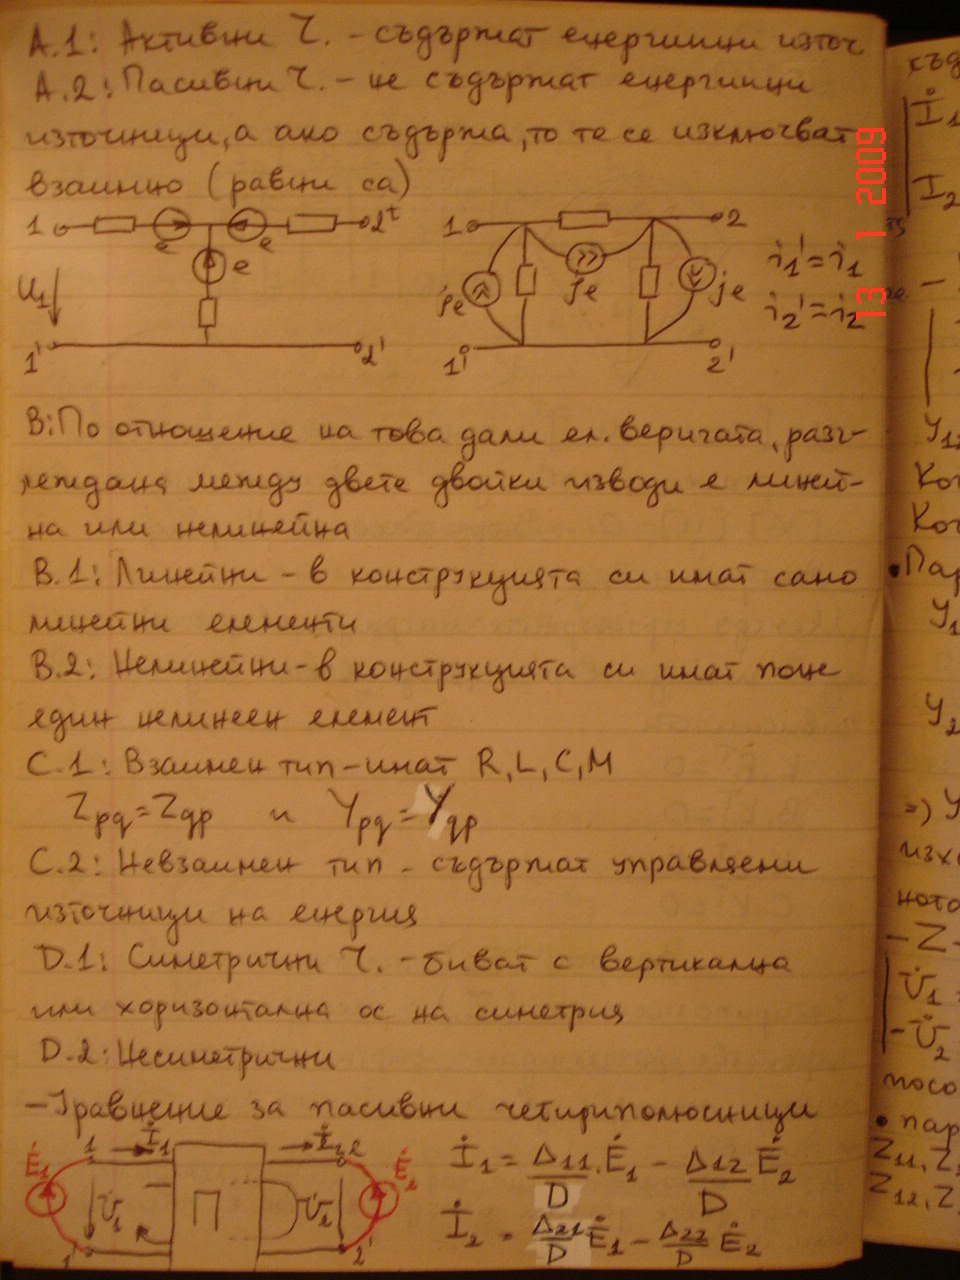 А.1: Активни Ч. - съдържат енергийни източ
А.2: Пасивни Ч. - не съдържат енергийни
източници, а ако съдържа, то те се изключват
взаимно (равни са)
1 e e 2
e
U1
1' 2'
1 2
je je je
1' 2'
i1' = i1
i2' = i2
13 1 2009
В: По отношение на това дали ел. веригата, разг-
леждана между двете двойки изводи е линей-
на или нелинейна
В.1: Линейни - в конструкцията си имат само
линейни елементи
В.2: Нелинейни - в конструкцията си имат поне
един нелинеен елемент
С.1: Взаимен тип - имат R, L, C, M
Zpq = Zqp и Ypq = Yqp
С.2: Невзаимен тип - съдържат управляеми
източници на енергия
D.1: Симетрични Ч. - биват с вертикална
или хоризонтална ос на симетрия
D.2: Несиметрични
- Уравнение за пасивни четириполюсници
Ė1 1 İ1 İ2 2 Ė2
U̇1 П U̇2
1' 2'
İ1 = Δ11/D . Ė1 - Δ12/D Ė2
İ2 = Δ21/D Ė1 - Δ22/D Ė2
İ1
I2
• Пар
=) У
-Z-
U̇1
-U̇2
посо
• пар
Z11, Z
Z12, Z